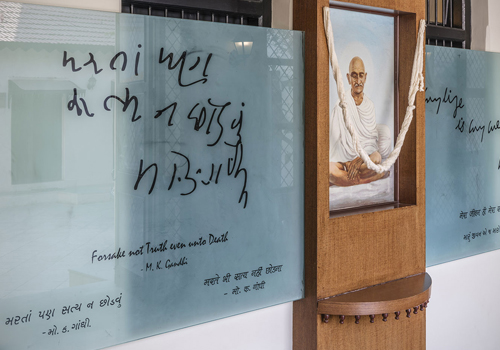 મરતાં પણ
સત્ય ન છોડવું
મો ક ગાંધી
Forsake not Truth even unto Death
- M. K. Gandhi
मरते भी सत्य नहीं छोडना
- मो. क. गांधी
મરતાં પણ સત્ય ન છોડવું
-મો.ક.ગાંધી.
my life
is my
मेरा जीवन ही मेरा
મારું જીવન એ જ